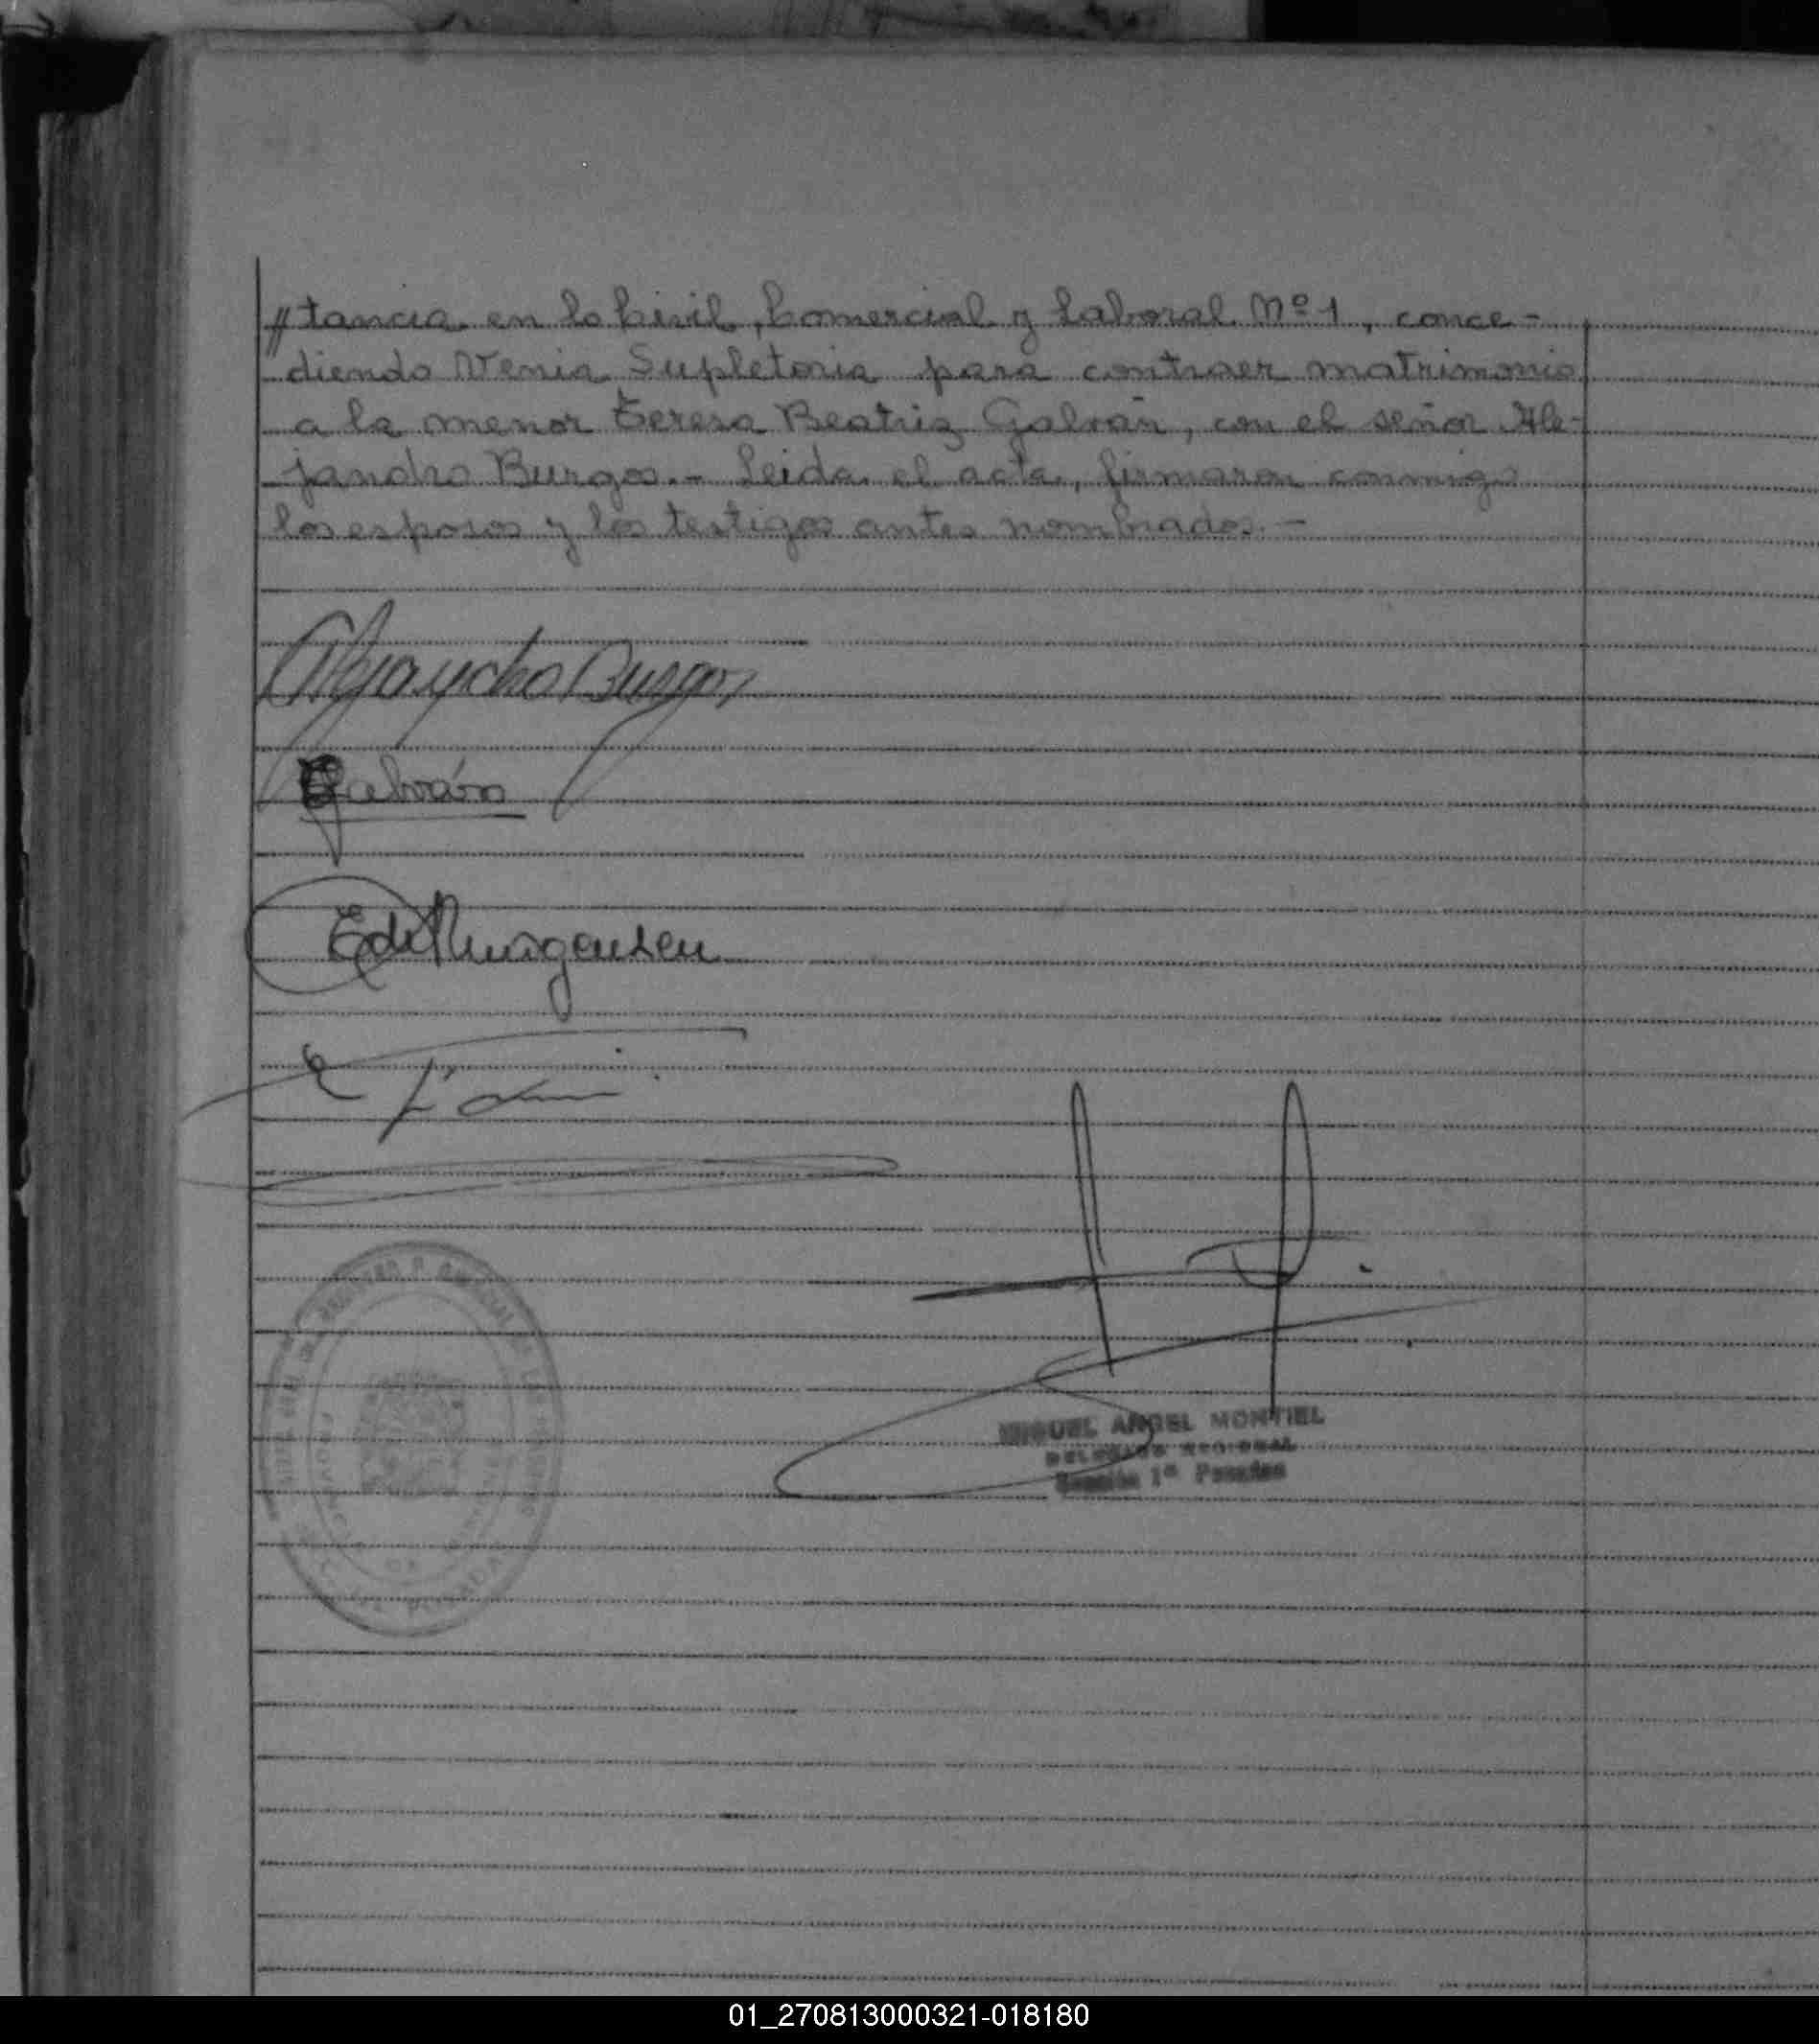 //tancia en lo Civil, Comercial y Laboral Nº 1, conce-
diendo Venia Supletoria para contraer matrimonio
a la menor Teresa Beatriz Galván, con el señor Ale-
jandro Burgos.- Leida el acta, firmaron conmigo
los esposos y los testigos antes nombrados.-
Alejandro Burgos
Galván
MIGUEL ANGEL MONTIEL
DELEGADO REGIONAL
Sección 1ª Posadas
PROVINCIA DE MISIONES
POSADAS
01_270813000321-018180